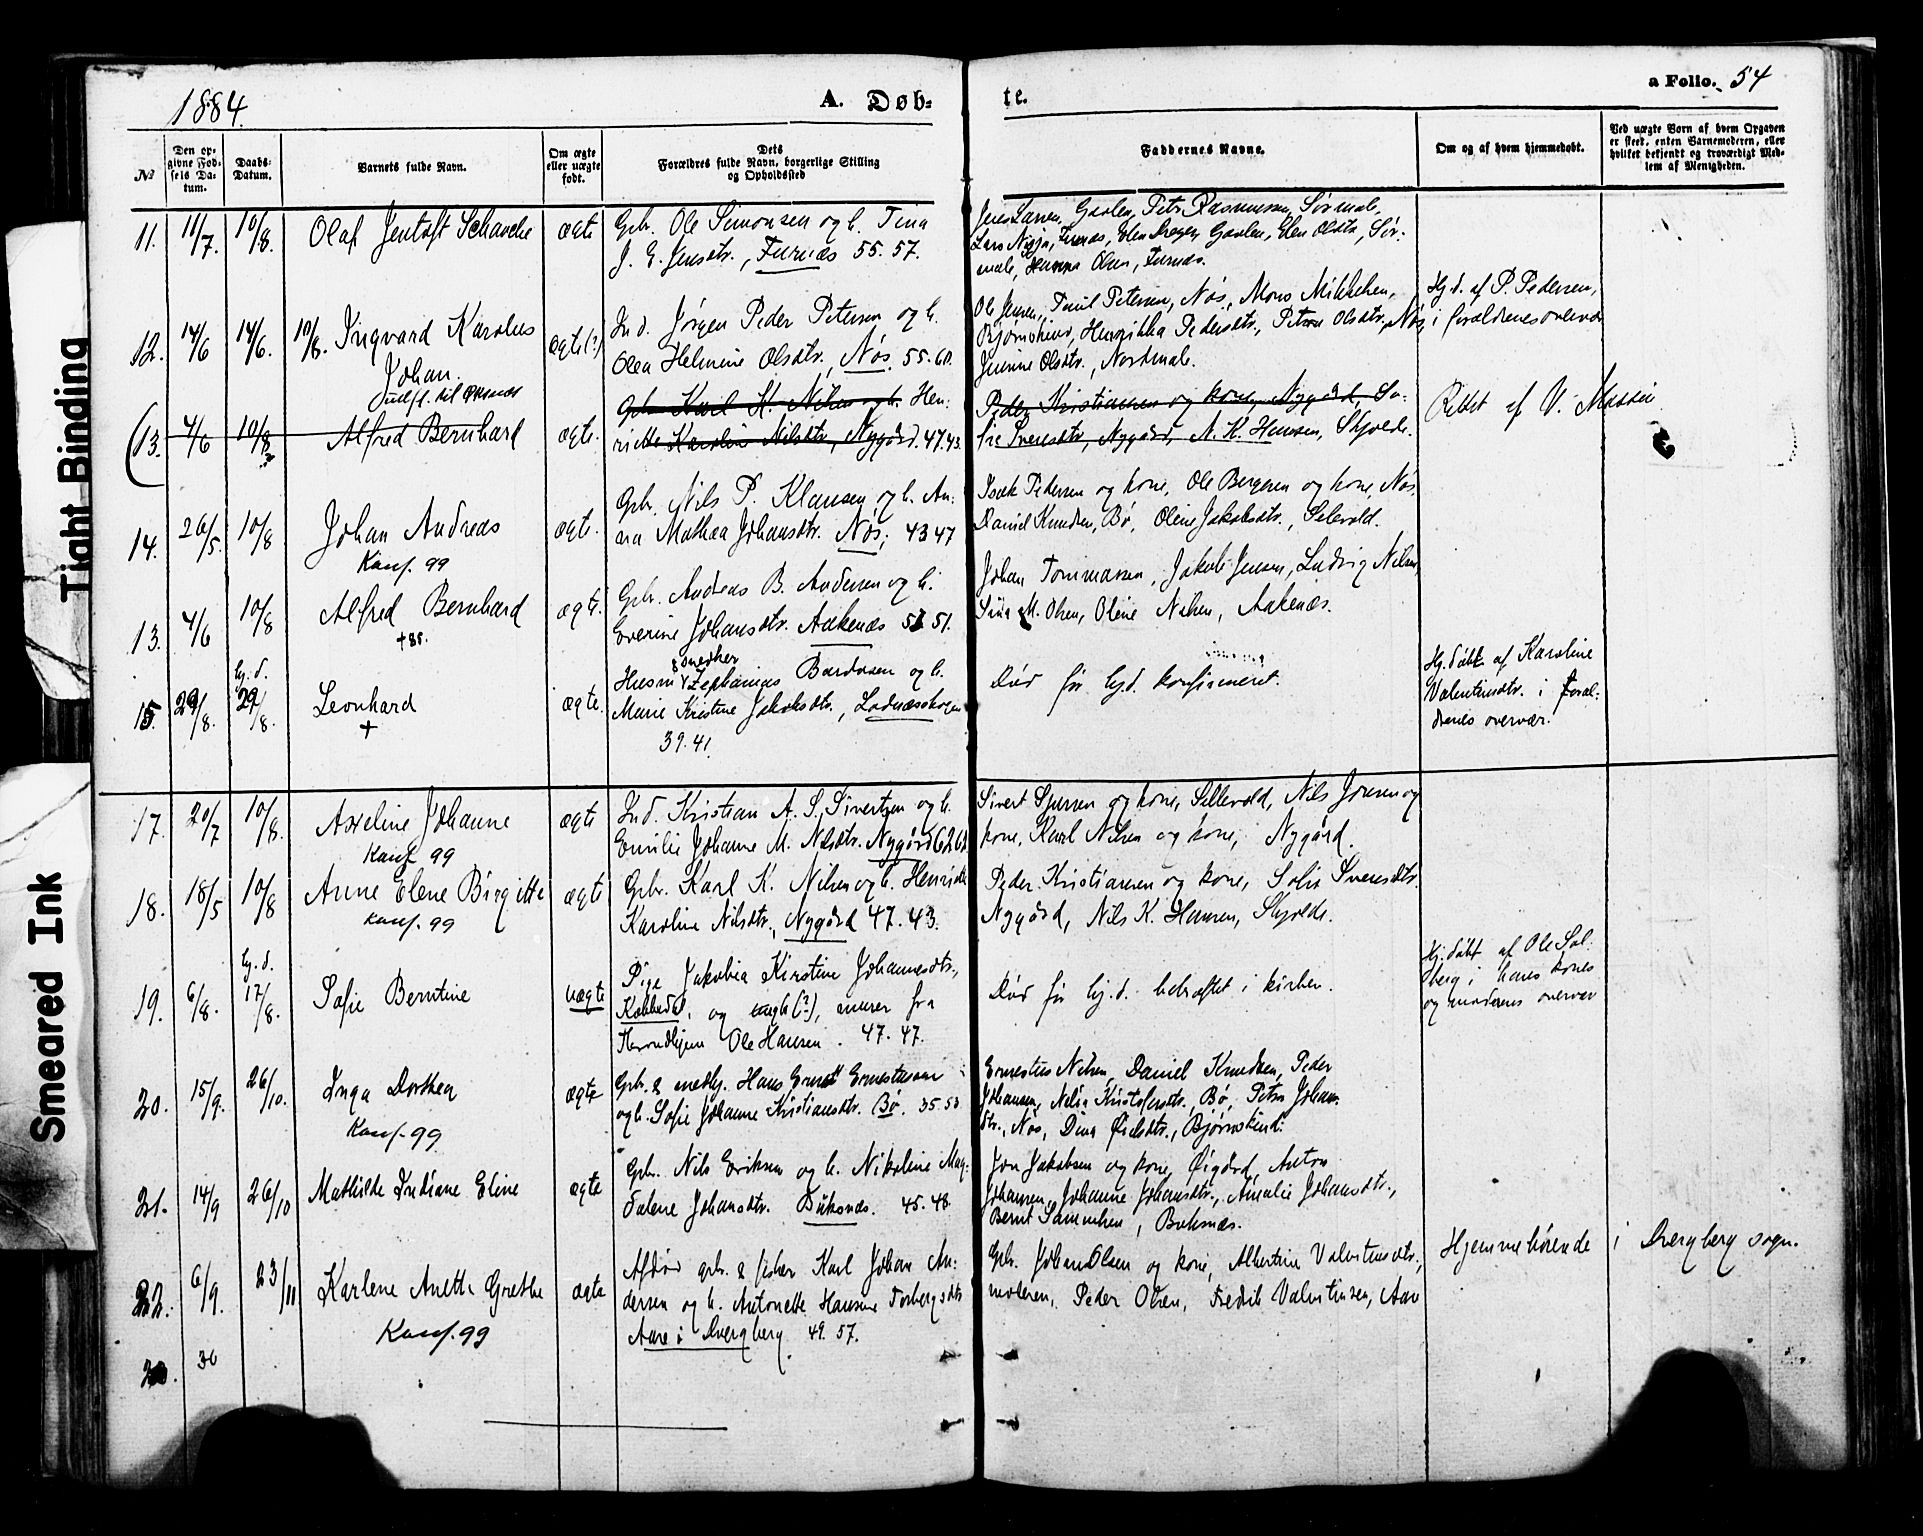 1884.
A. Døb-
te.
a Folio. 54
No
Den op-
givne Fød-
sels Da-
tum.
Daabs-
Datum.
Barnets fulde Navn.
Om ægte
eller uægte
født.
Dets
Forældres fulde Navn, borgerlige Stilling
og Opholdssted
Faddernes Navne.
Om og af hvem hjemmedøbt.
Ved uægte Børn af hvem Opgaven
er skeet, enten Barnemoderen, eller
hvilket bekjendt og troværdigt Med-
lem af Menigheden.
11. 11/7. 10/8. Olaf Jentoft Schanche ægte Gbr. Ole Simonsen og h. Tina
J. E. Jensdtr., Furnæs 55. 57.
Jens Larsen, Gavlen, Petr. Rasmussen, Sørmæle,
Furnæs, Gavlen, Elen Olsdtr, Sør-
mæle, Hanna Olsen, Furnæs.
12. 14/6 14/6. 10/8. Ingvard Karolus
Johan.
udfl. til Øksnæs
ægte(?)
Ind. Jørgen Peder Petersen og h.
Olea Helmine Olsdtr., Nøs. 55. 60.
Ole Jensen, Emil Petersen, Nøs, Mons Mikkelsen,
Bjørnskind, Henrikka Pedersdtr, Petra Olsdtr, Nøs,
Jensine Olsdtr, Nordmæle.
Hj. d. af P. Pedersen,
i forældrenes overvær
13. 4/6 10/8 Alfred Bernhard ægte.
Gbr. Karl K. Nilsen og h. Hen-
riette Karoline Nilsdtr, Nygård. 47. 43.
Peder Kristiansen og kone, Nygård, So-
fie Sveensdtr, Nygård, N. K. Hansen, Skjolde.
Rettet af V.
14. 26/5. 10/8 Johan Andreas
Konf. 99
ægte.
Gbr. Nils P. Klausen og h. An-
na Mathea Johansdtr. Nøs, 43 47
Isak Pedersen og kone, Ole Bergesen og kone, Nøs,
Daniel Knudsen, Bø, Oline Jakobsdtr., Selevold.
13. 4/6 10/8 Alfred Bernhard
+ 85.
ægte.
Gbr. Andreas B. Andersen og h.
Everine Johansdtr. Aakenæs 51.
Johan Tommassen, Jakob Jensen, Ludvig Nilsen,
Sina M. Olsen, Oline Nilsen, Aakenæs.
15. 29/8. hj. d.
29/8. Leonhard
+
ægte.
Husm. & snedker Zephanias Bardosen og h.
Marie Kristine Jakobsdtr.,
39. 41
Død før hj.d. konfirmeret.
Hj. døbt af Karoline
Valentinsdtr. i foræl-
drenes overvær.
17. 20/7 10/8. Axeline Johanne
Konf. 99
ægte
Ind. Kristian A. S. Sivertsen og h.
Emilie Johanne M. Nilsdtr. Nygård
Sivert Sjursen og kone, Sellevold, Nils Jonsen og
kone, Karl Nilsen og kone, Nygård.
18. 18/5 10/8 Anne Elene Birgitte
Konf. 99
ægte
Gbr. Karl K. Nilsen og h. Henriette
Karoline Nilsdtr., Nygård 47. 43.
Peder Kristiansen og kone, Sofie Sveensdtr.
Nygård, Nils K. Hansen, Skjolde.
19. 6/8. hj. d.
17/8. Sofie Berntine
uægte
Pige Jakobia Kirstine Johannesdtr.,
Kobbedal, og ungk(?), murer fra
Trondhjem Ole Hansen. 47. 47.
Død før hj.d. bekræftet i kirken.
Hj. døbt af Ole Sol-
berg i hans kones
og moderens overvær
20. 15/9. 26/10. Inga Dorthea
Konf. 99
ægte
Gbr. & snedkr. Hans Ernst Ernestussen
og h. Sofie Johanne Kristiansdtr. Bø. 35. 53
Ernestus Nilsen, Daniel Knudsen, Peder
Johansen, Nelia Kristofersdtr. Bø, Petra Johans-
dtr., Nøs, Dina Ødsdtr., Bjørnskind.
21. 14/9 26/10 Mathilde Indiane Eline ægte
Gbr. Nils Eriksen og h. Nikoline Mag-
dalene Johansdtr. Buksnæs. 45. 48.
Jon Jakobsen og kone, Øigård, Anton
Johansen, Johanne Johansdtr., Amalie Johansdtr.,
Bernt Samuelsen, Buksnæs.
22. 6/9. 23/11 Karlene Anette Grethe
Konf. 99
ægte
Afdød gbr. & fisker Karl Johan An-
dersen og h. Antonette Hansine Torbergsdtr
Aase i Dverberg 49. 57.
Gbr. Johan Olsen og kone, Albertine Valentinsdtr.,
moderen, Peder Olsen, Fredrik Valentinsen, Aase
Hjemmehørende i Dverberg sogn.
Tight Binding
Smeared Ink